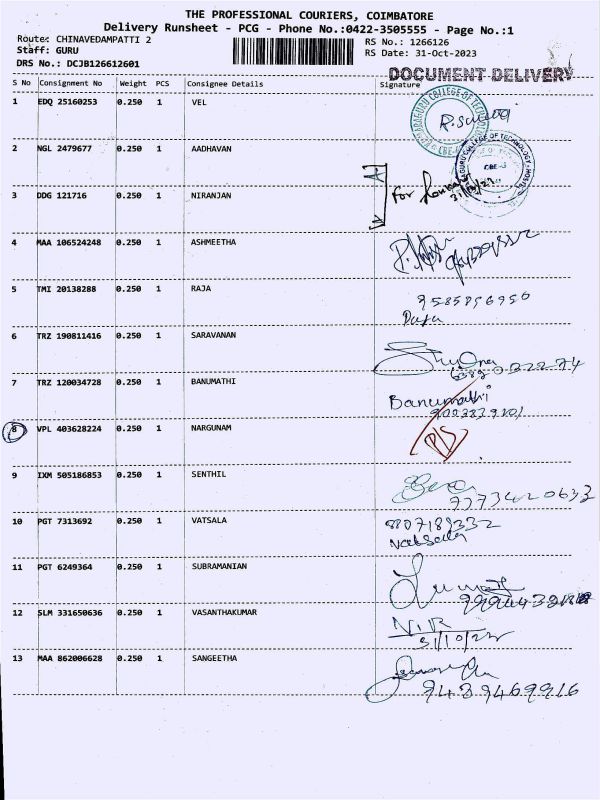 THE PROFESSIONAL COURIERS, COIMBATORE
Delivery Runsheet - PCG - Phone No.:0422-3505555 - Page No.:1
Route: CHINAVEDAMPATTI 2
RS No.: 1266126
Staff: GURU
RS Date: 31-Oct-2023
DRS No.: DCJB126612601
DOCUMENT DELIVERY
S No Consignment No Weight PCS Consignee Details Signature
1 EDQ 25160253 0.250 1 VEL
2 NGL 2479677 0.250 1 AADHAVAN
3 DDG 121716 0.250 1 NIRANJAN
For
4 MAA 106524248 0.250 1 ASHMEETHA
5 TMI 20138288 0.250 1 RAJA
9585856950
6 TRZ 190811416 0.250 1 SARAVANAN
7 TRZ 120034728 0.250 1 BANUMATHI
Banumathi
8 VPL 403628224 0.250 1 NARGUNAM
9 IXM 505186853 0.250 1 SENTHIL
7373420633
10 PGT 7313692 0.250 1 VATSALA
8807189332
11 PGT 6249364 0.250 1 SUBRAMANIAN
12 SLM 331650636 0.250 1 VASANTHAKUMAR
13 MAA 862006628 0.250 1 SANGEETHA
9489469916